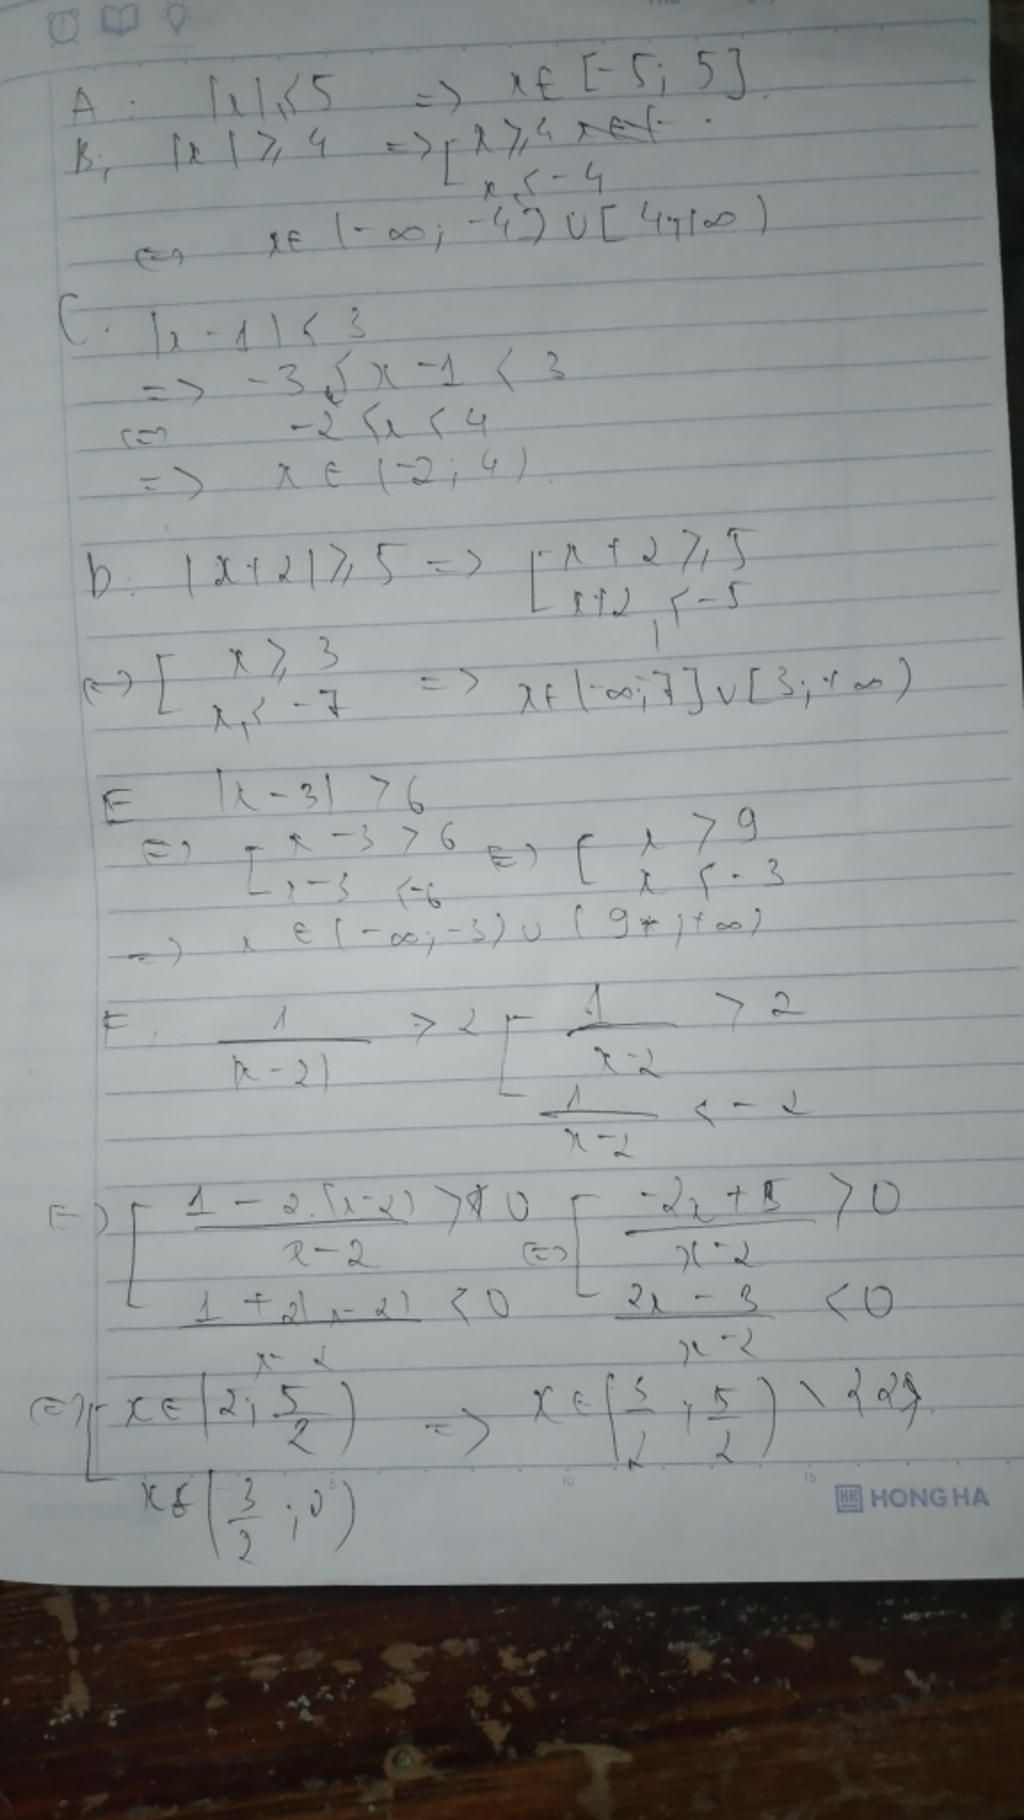 A: |x| ≤ 5 => x ∈ [-5; 5].
B; |x| ≥ 4 => [ x ≥ 4
x ≤ -4
<=> x ∈ (-∞; -4] ∪ [4; +∞)
C. |x - 1| < 3
=> -3 < x - 1 < 3
<=> -2 < x < 4
=> x ∈ (-2; 4).
D. |x + 2| ≥ 5 => [ x + 2 ≥ 5
x + 2 ≤ -5
<=> [ x ≥ 3
x ≤ -7 => x ∈ (-∞; 7] ∪ [3; +∞)
E |x - 3| > 6
<=> [ x - 3 > 6 <=> [ x > 9
x - 3 < -6 x < -3
=> x ∈ (-∞; -3) ∪ (9; +∞)
F. 1/|x - 2| > 2 [ 1/(x - 2) > 2
1/(x - 2) < -2
<=> [ (1 - 2.(x - 2))/(x - 2) > 0 <=> [ (-2x + 5)/(x - 2) > 0
(1 + 2(x - 2))/(x - 2) < 0 (2x - 3)/(x - 2) < 0
<=> [ x ∈ (2; 5/2) => x ∈ (3/2; 5/2) \ {2}.
x ∈ (3/2; 2)
10 15
HONG HA